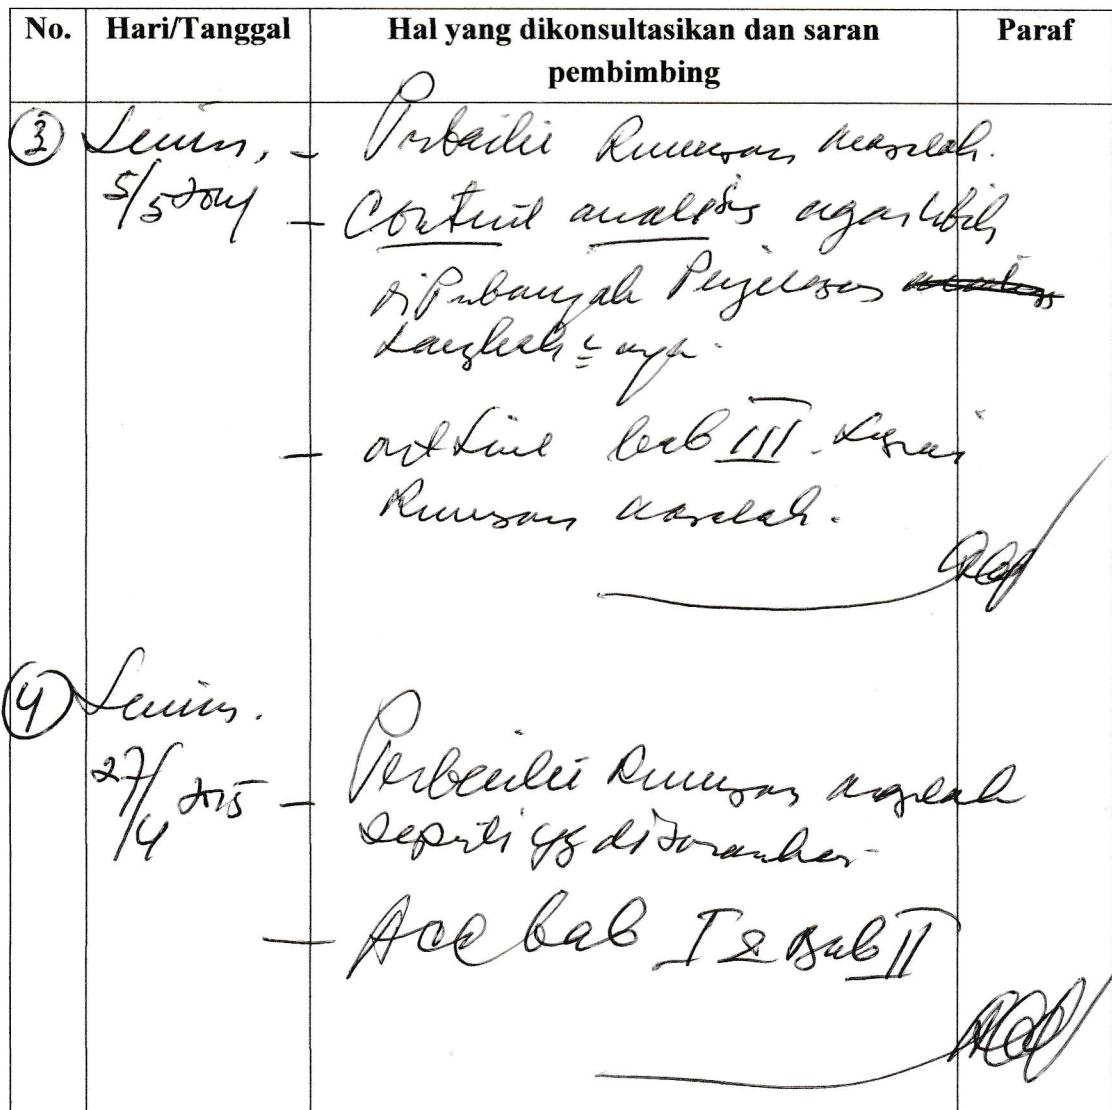 No. Hari/Tanggal Hal yang dikonsultasikan dan saran pembimbing Paraf
3 Senin, - Perbaiki Rumusan masalah.
5/5 2014 - Content analisis agar lebih
di Perbanyak Penjelasan
Langkah2 nya.
- outline bab III. sesuai
Rumusan masalah.
4 Senin.
27/4 2015 - Perbaiki Rumusan masalah
seperti yg disarankan
- Acc bab I & Bab II